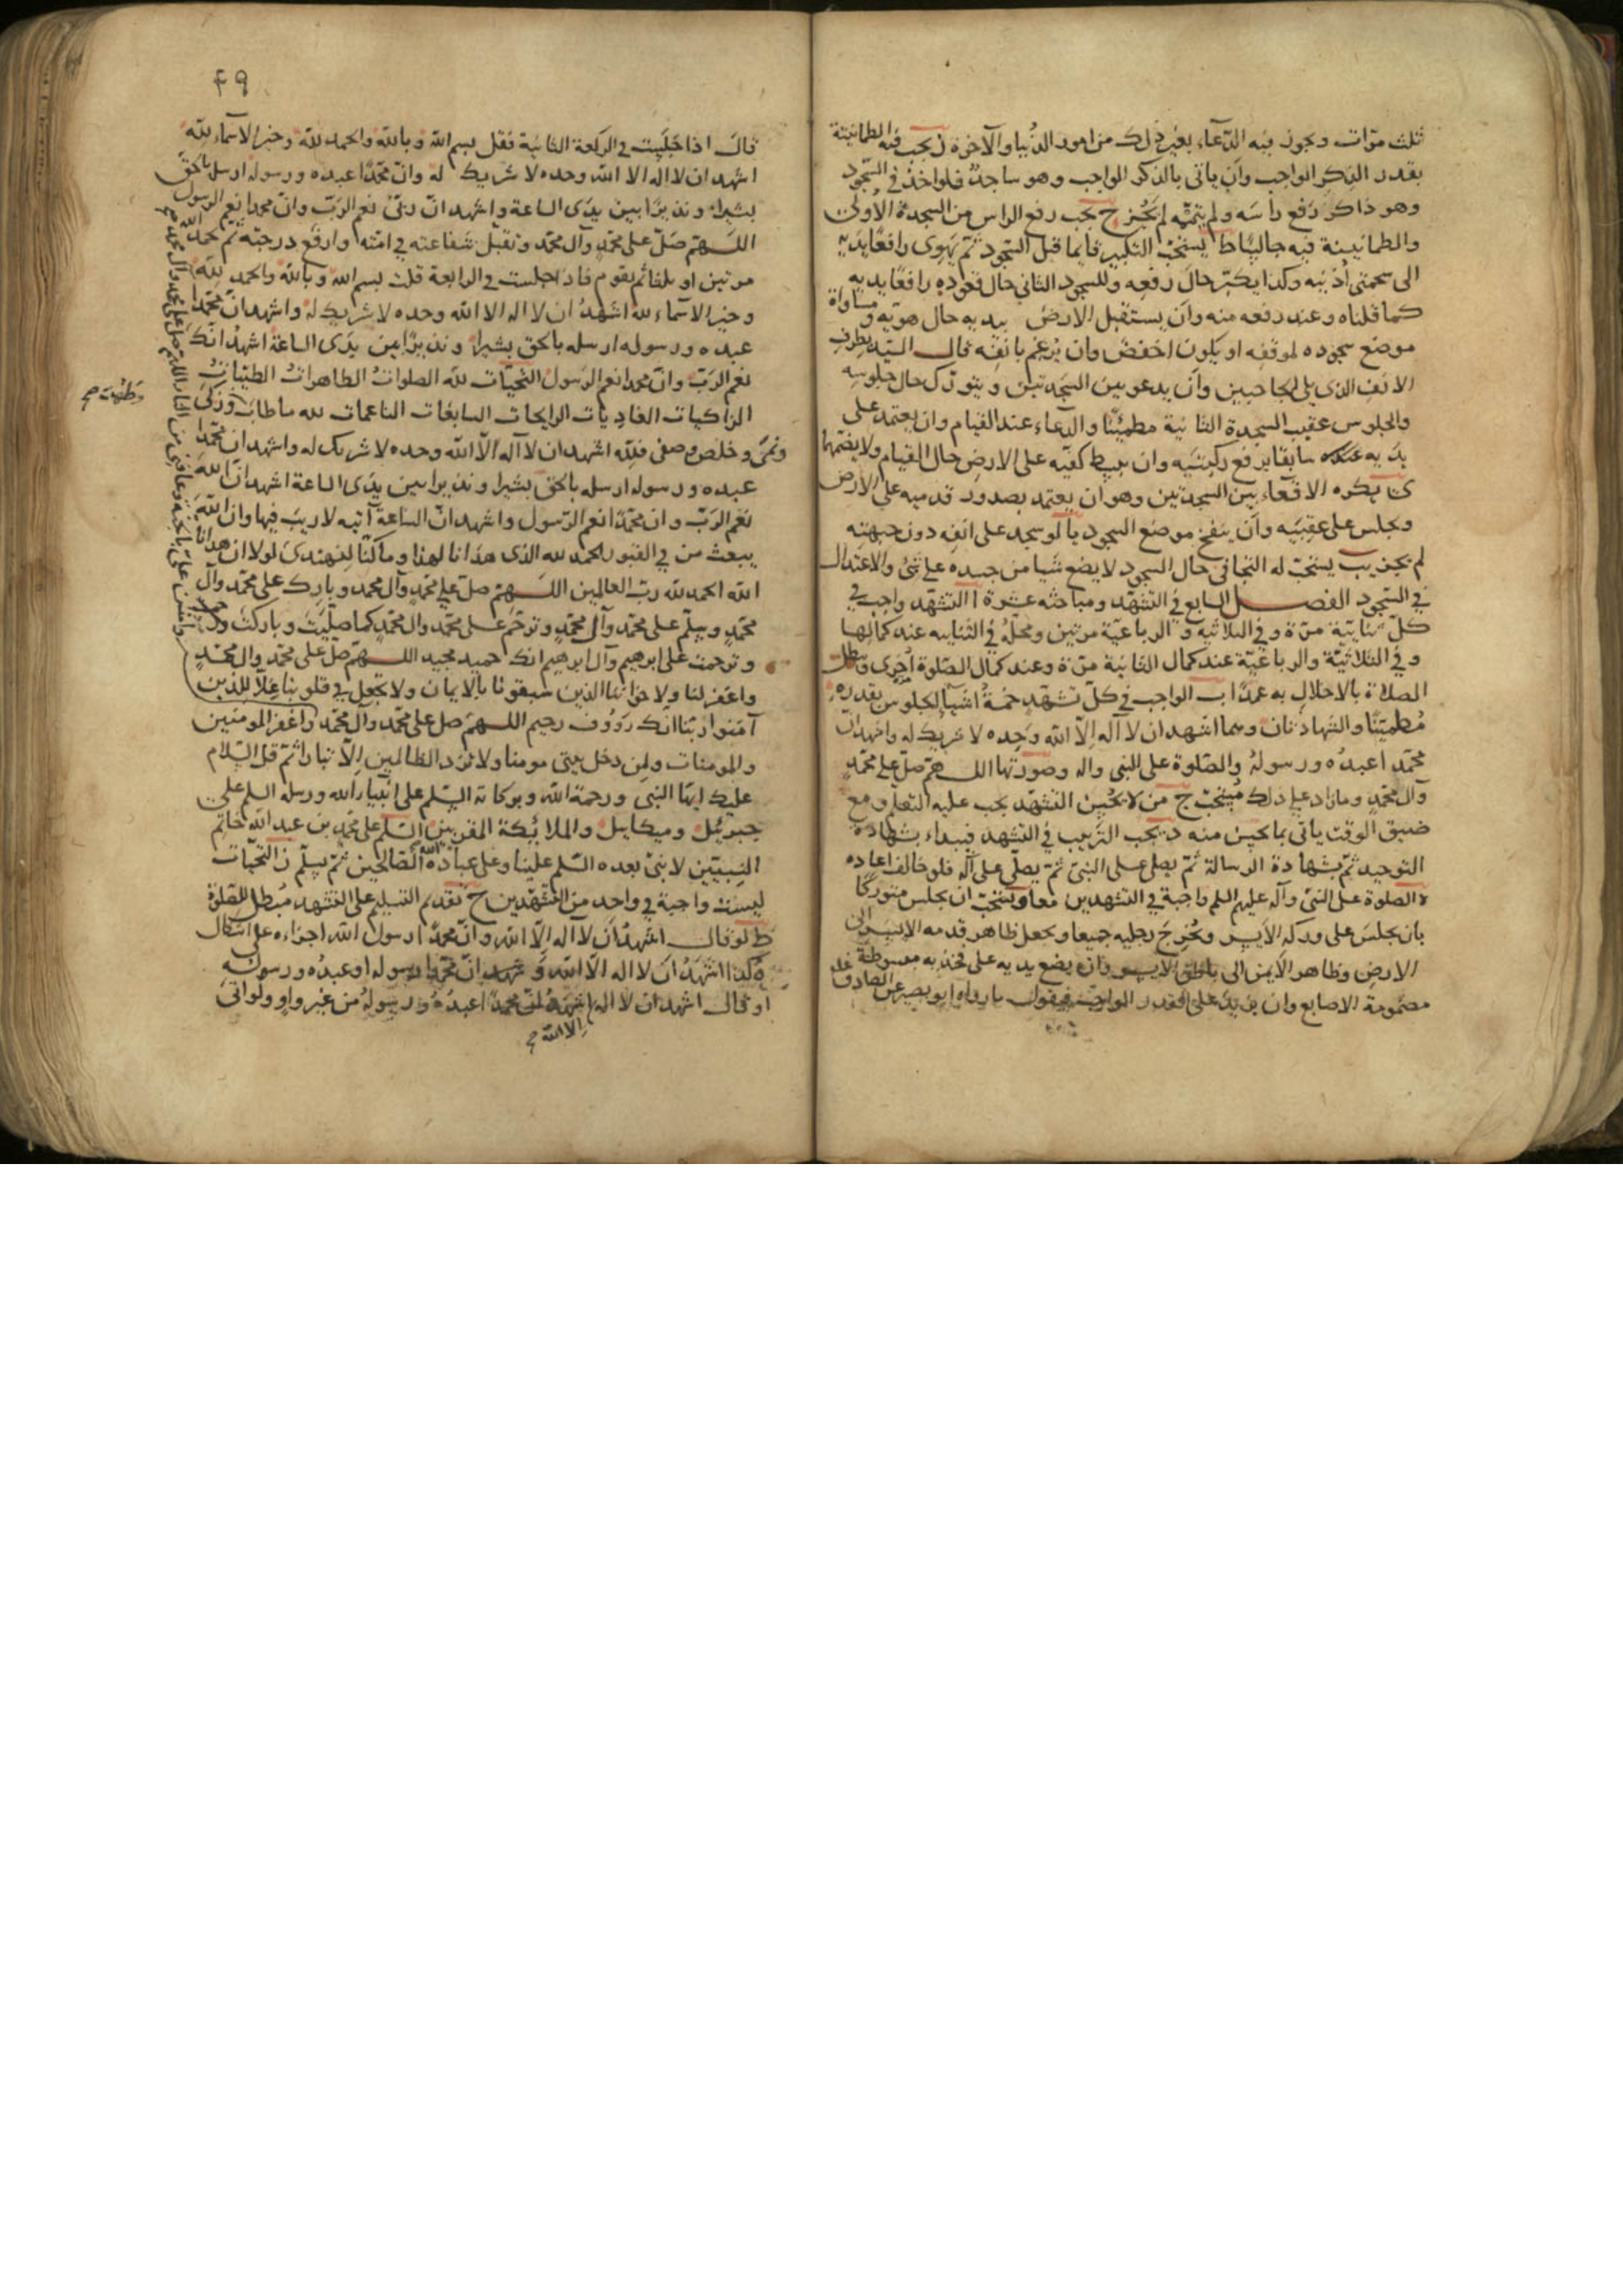 ثلث مرّات ويجوز فيه الدّعاء بغير ذلك من امور الدُّنيا والآخرة ز يجب فيه الطمانينة
بقدر الذكر الواجب وأن ياتى بالذكر الواجب وهو ساجدٌ فلو اخذ في السّجود
وهو ذاكر او رفع رأسَه ولم يتمّه لم يُجز ح يجب رفع الراس من السجدة الأولى
والطمانينة فيه جالسًا ط يستحبّ التكبير قايما قبل السّجود ثمّ يهوى رافعًا يديه
الى شحمتى أذنيه وكذا يكبّر حالَ رفعِه وللسجود الثانى حال قعوده رافعًا يديه
كما قلناه وعند رفعه منه وأن يستقبل الارضَ بيديه حال هويّه ومساواة
موضع سجوده لموقفه او يكون اخفضَ وان يُرغم بانفِه قال السيّد بطرفِ
الانف الذى يلى الحاجبين وأن يدعو بين السجدتين ويتورّك حال جلوسه
والجلوس عقيب السجدة الثانية مطمئنًّا والدّعاء عند القيام وان يعتمد على
يديه عنده سابقا برفع ركبتيه وان يبسط كفّيه على الارض حال القيام ولا يضمّهما
ى يكره الاقعاء بين السجدتين وهو ان يعتمد بصدور قدميه على الأرض
ويجلس على عقبيه وأن ينفخ موضع السجود يا لو سجد على انفِه دون جبهتِه
لم يجز يب يستحبّ له التجافى حال السجود لا يضع شيا من جسده على شئ والاعتدال
في السّجود الفصل السابع في التشهّد ومباحثه عشرة ا التشهّد واجب في
كلّ ثنايّية مرّة وفي الثلاثيّة والرباعيّة مرتين ومحلّه في الثنايية عند كمالها
وفي الثلاثيّة والرباعيّة عند كمال الثانية مرّة وعند كمال الصّلوة اُخرى وتبطل
الصلاة بالاخلال به عمدًا ب الواجب في كلّ تشهّد خمسةُ اشيآءِ الجلوس بقدره
مُطميّنًا والشهادتان وهما اشهد ان لا اله الّا الله وحده لا شريك له واشهد انّ
محمّدًا عبدُه ورسولهُ والصّلوة على النبى واله وصورتها اللهمّ صلّ على محمّدٍ
وآل محمّدٍ وما زاد على ذلك مُستحبّ ج من لا يحسِن التشهّد يجب عليه التعلّم ومع
ضيق الوقت ياتى بما يحسن منه د يجب الترتيب في التشهد فيبداء بشهادة
التوحيد ثمّ بشهادة الرسالة ثمّ يصلى على النبىّ ثمّ يصلّى على آلِه فلو خالف اعاده
ه الصلوة على النبىّ وآله عليهم السلم واجبة في التشهدين معا و يستحبّ ان يجلس متوركًا
بان يجلسَ على وركه الأيسر ويُخرِجَ رجليه جميعا ويجعل ظاهر قدمه الايسر الى
الارضِ وظاهر الأيمن الى باطن الايسر وان يضع يديه على فخذيه مبسوطة
مضمومة الاصابع وان يزيد على القدر الواجب فيقول ما رواه ابو بصير عن الصادق عله
٤٩
قال اذا جَلَست في الركعة الثانية فقل بسم الله وبالله والحمد لله وخير الآسماء لله
اشهد ان لا اله الا الله وحده لا شريك له وانّ محمّدًا عبده ورسوله ارسله بالحقّ
بشيرا ونذيرًا بين يدَى الساعة واشهد انّ ربّى نعم الربّ وانّ محمدا نعم الرسول
اللهمّ صلّ على محمّدٍ وآل محمّد وتقبّل شفاعته في امّته وارفع درجته ثمّ تحمد الله
مرتين او ثلثا ثم تقوم فاذا جلست في الرابعة قلت بسم الله وبالله والحمد لله
وخير الاسماء لله اشهدُ ان لا اله الا الله وحده لا شريك له واشهد انّ محمّدا
عبده ورسوله ارسله بالحق بشيرا ونذيرًا بين يدَى الساعة اشهدُ انّك
نعم الربّ وانّ محمدا نعم الرسول التحيّات لله الصلواتُ الطاهراتُ الطيّباتُ
الزاكيات الغاديات الرايحات السابغات الناعمات لله ما طابَ وزكى
وطهُرَ صح
ونمى وخلص وصفى فلِلّه اشهد ان لا اله الّا الله وحده لا شريك له واشهد ان محمّدا
عبده ورسوله ارسله بالحق بشيرا ونذيرا بين يدَى الساعة اشهد انّ اللهَ
نعم الربّ وانّ محمّدًا نعم الرّسول واشهد انّ الساعة آتيه لا ريبَ فيها وان اللهَ
يبعث من في القبور الحمد لله الذى هدانا لهذا وما كنّا لنهتدىَ لولا ان هدانا
الله الحمد لله ربّ العالمين اللهمّ صلّ على محمّدٍ وآل محمد وبارك على محمّد وآل
محمّدٍ وسلّم على محمّد وآل محمّدٍ وترحّم على محمّد وال محمّدٍ كما صلّيتَ وباركتَ
وترحمت على ابرهيم وآل ابرهيم انّك حميد مجيد اللهمّ صلّ على محمّد وال محمّدٍ
واغفر لنا ولاخواننا الذين سبقونا بالايمان ولا تجعل في قلوبنا غِلّا للذين
آمنوا ربّنا انّك رَؤوف رحيم اللهمّ صل على محمّد وآل محمّد واغفر للمومنين
والمومنات ولمن دخل بيتى مومنا ولا تزد الظالمين الّا تبارا ثمّ قل السّلام
عليك ايها النبى ورحمة الله وبركاته السّلم على انبياء الله ورسله السلم على
جبرئيل وميكايل والملائكة المقربين السّلم على محمّدٍ بن عبد الله خاتم
النبيّين لا نبىّ بعده السّلم علينا وعلى عباد الله الصّالحين ثمّ يسلّم ز التحيّات
ليست واجبة في واحد من التشهّدين ح تقديم التسليم على التشهد مُبطل للصّلوة
ط لو قال اشهدُ أن لا اله الّا الله وانّ محمدًا رسول الله اجزاءه على اشكال
وكذا اشهَدُ انَ لا اله الّا الله واشهد انّ محمّدا رسوله او عبدُه ورسوله
او قال اشهد ان لا اله الا الله صح اشهدُ انّ محمدًا عبدُه ورسولهُ من غير واو ولو اتى